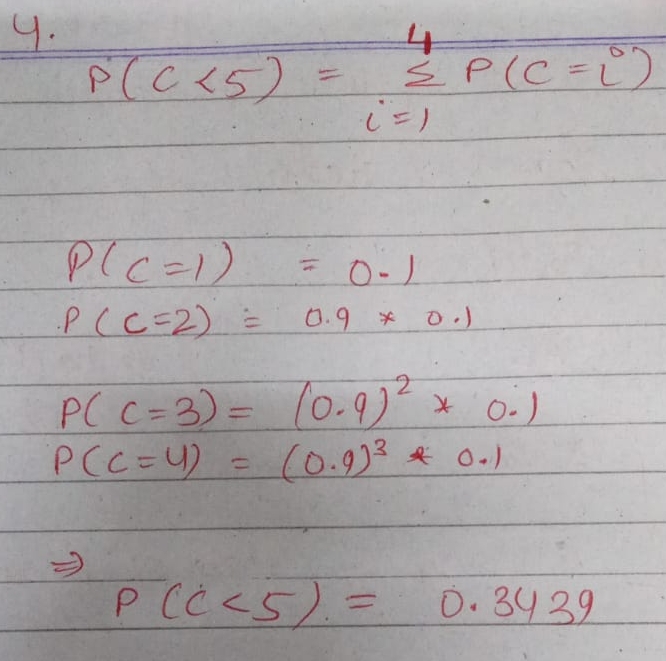 4.
4
P(C<5) = Σ P(C=i)
i=1
P(C=1) = 0.1
P(C=2) = 0.9 * 0.1
P(C=3) = (0.9)² * 0.1
P(C=4) = (0.9)³ * 0.1
⇒
P(C<5) = 0.3439